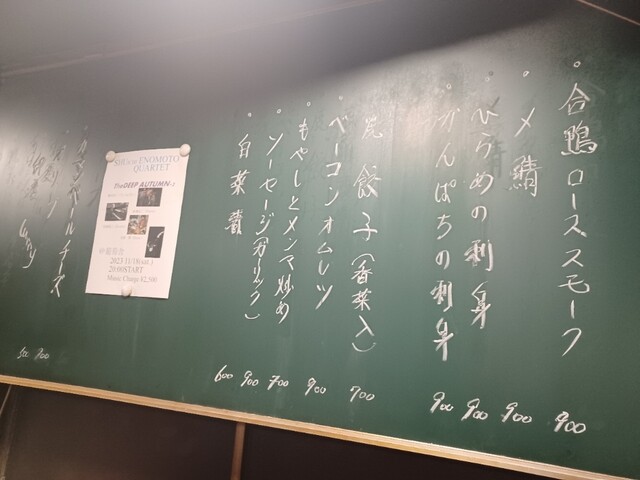 合鴨ローススモーク 900
〆鯖 900
ひらめの刺身 900
かんぱちの刺身 900
餃子(香菜入) 700
ベーコンオムレツ 900
もやしとメンマ炒め 700
ソーセージ(ガリック) 900
白菜 600
SHUichi ENOMOTO
QUARTET
TheDEEP AUTUMN
2023 11/18(sat.)
20:00START
Music Charge ¥2,500
カマンベールチーズ 700